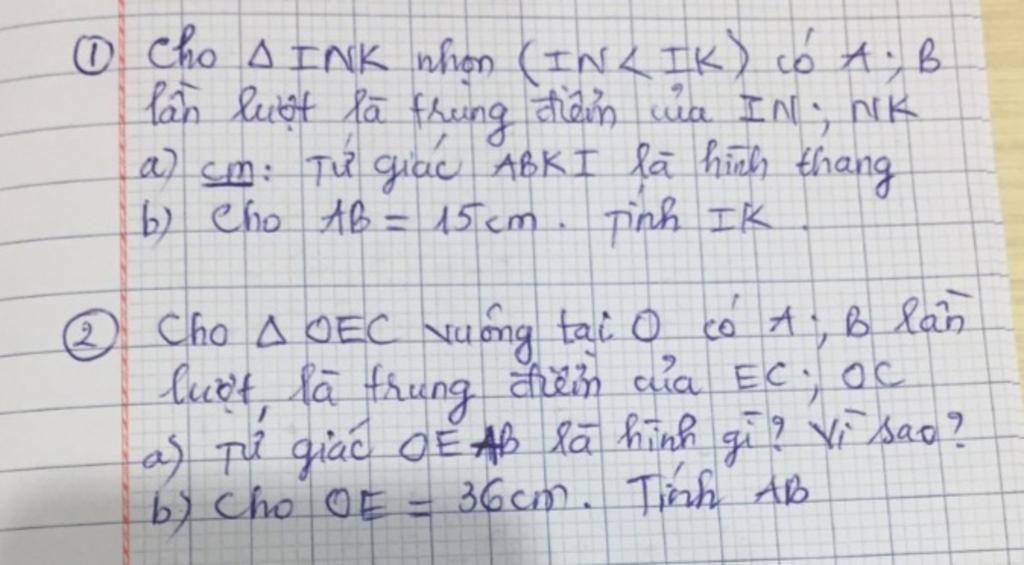 ① Cho Δ INK nhọn (IN < IK) có A; B
lần lượt là trung điểm của IN; NK
a) cm: Tứ giác ABKI là hình thang
b) Cho AB = 15cm. Tính IK.
② Cho Δ OEC vuông tại O có A; B lần
lượt là trung điểm của EC; OC
a) Tứ giác OEAB là hình gì? Vì sao?
b) Cho OE = 36cm. Tính AB